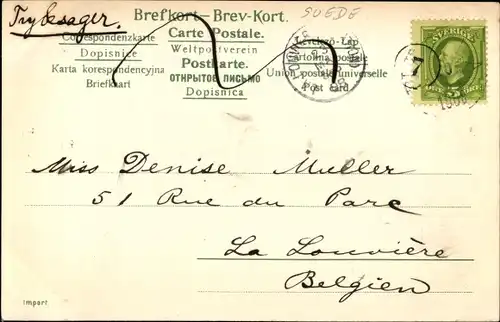 Tryksager.
Brefkort - Brev-Kort.
SUEDE
Correspondenzkarte
Carte Postale.
Levelező-Lap
Dopisnice
Weltpostverein
Cartolina postale
Karta korespondencyjna
Postkarte.
Union postale universelle
Briefkaart
ОТКРЫТОЕ ПИСЬМО
Post card
Dopisnica
SVERIGE
5 ÖRE
Miss Denise Muller
51 Rue du Parc
La Louvière
Belgien
Import.